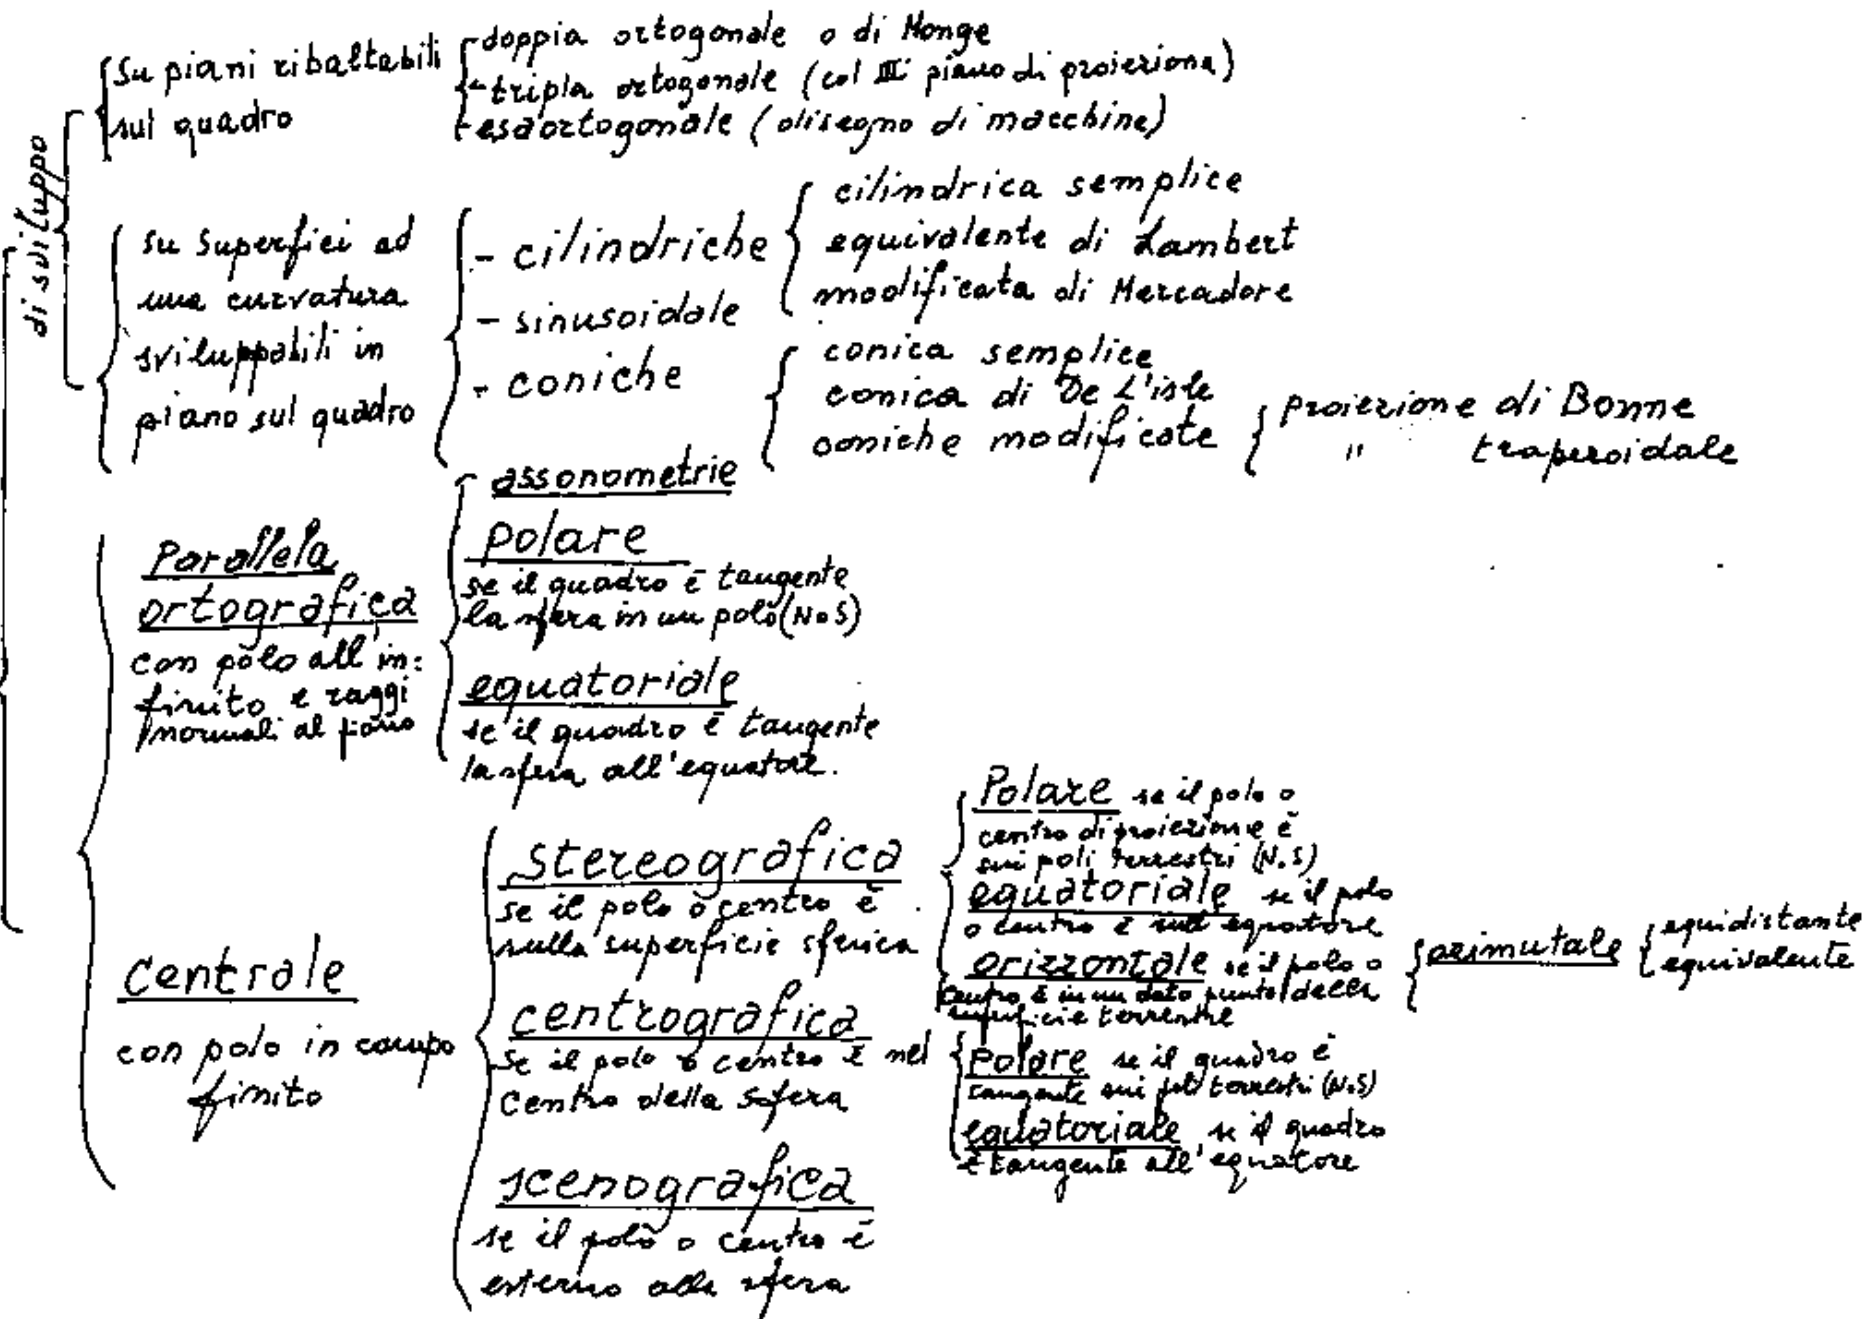 di sviluppo
su piani ribaltabili
sul quadro
- doppia ortogonale o di Monge
- tripla ortogonale (col III° piano di proiezione)
- esaortogonale (disegno di macchine)
su superfici ad
una curvatura
sviluppabili in
piano sul quadro
- cilindriche
- sinusoidale
- coniche
cilindrica semplice
equivalente di Lambert
modificata di Mercadore
conica semplice
conica di De L'isle
coniche modificate
proiezione di Bonne
" trapezoidale
Parallela
ortografica
con polo all'in=
finito e raggi
normali al piano
- assonometrie
polare
se il quadro è tangente
la sfera in un polo (N o S)
equatoriale
se il quadro è tangente
la sfera all'equatore.
Centrale
con polo in campo
finito
stereografica
se il polo o centro è
sulla superficie sferica
Polare se il polo o
centro di proiezione è
sui poli terrestri (N.S)
equatoriale se il polo
o centro è sull'equatore
orizzontale se il polo o
centro è in un dato punto della
superficie terrestre
azimutale
equidistante
equivalente
centrografica
se il polo o centro è nel
centro della sfera
Polare se il quadro è
tangente sui poli terrestri (N.S)
equatoriale se il quadro
è tangente all'equatore
scenografica
se il polo o centro è
esterno alla sfera